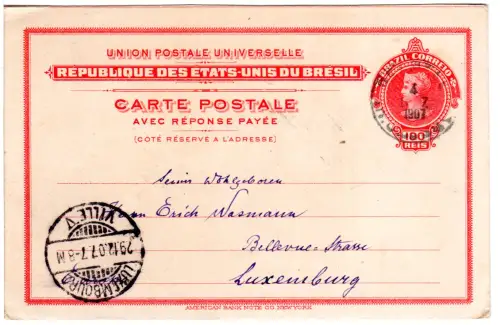 UNION POSTALE UNIVERSELLE
RÉPUBLIQUE DES ETATS-UNIS DU BRÉSIL
CARTE POSTALE
AVEC RÉPONSE PAYÉE
(CÔTÉ RÉSERVÉ A L'ADRESSE)
BRAZIL CORREIO
4
7
1907
100
REIS
Seiner Wohlgeboren
Herrn Erich Wasmann
Bellevue-Strasse
Luxemburg
LUXEMBOURG
VILLE V
29.12.07.7-8M
AMERICAN BANK NOTE CO. NEW YORK.